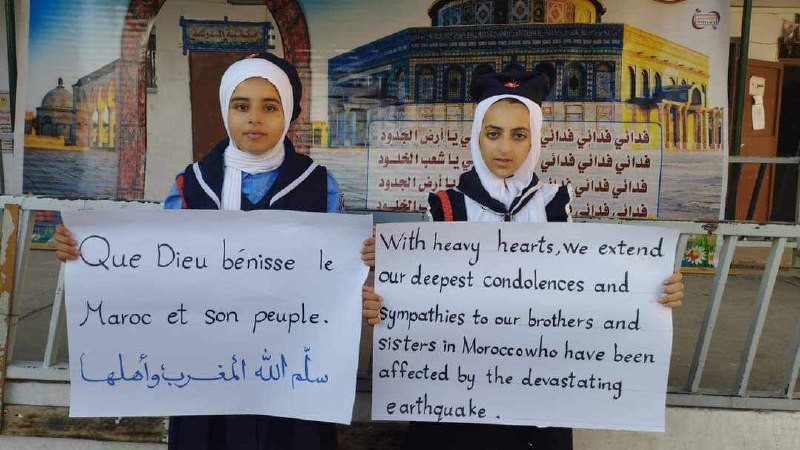 فدائي فدائي فدائي يا أرض الجدود
فدائي فدائي يا شعب الخلود
فدائي فدائي أرض الجدود
فدائي فدائي الخلود
Que Dieu bénisse le
Maroc et son peuple.
سلّم الله المغرب وأهلها
With heavy hearts, we extend
our deepest condolences and
sympathies to our brothers and
sisters in Moroccowho have been
affected by the devastating
earthquake.